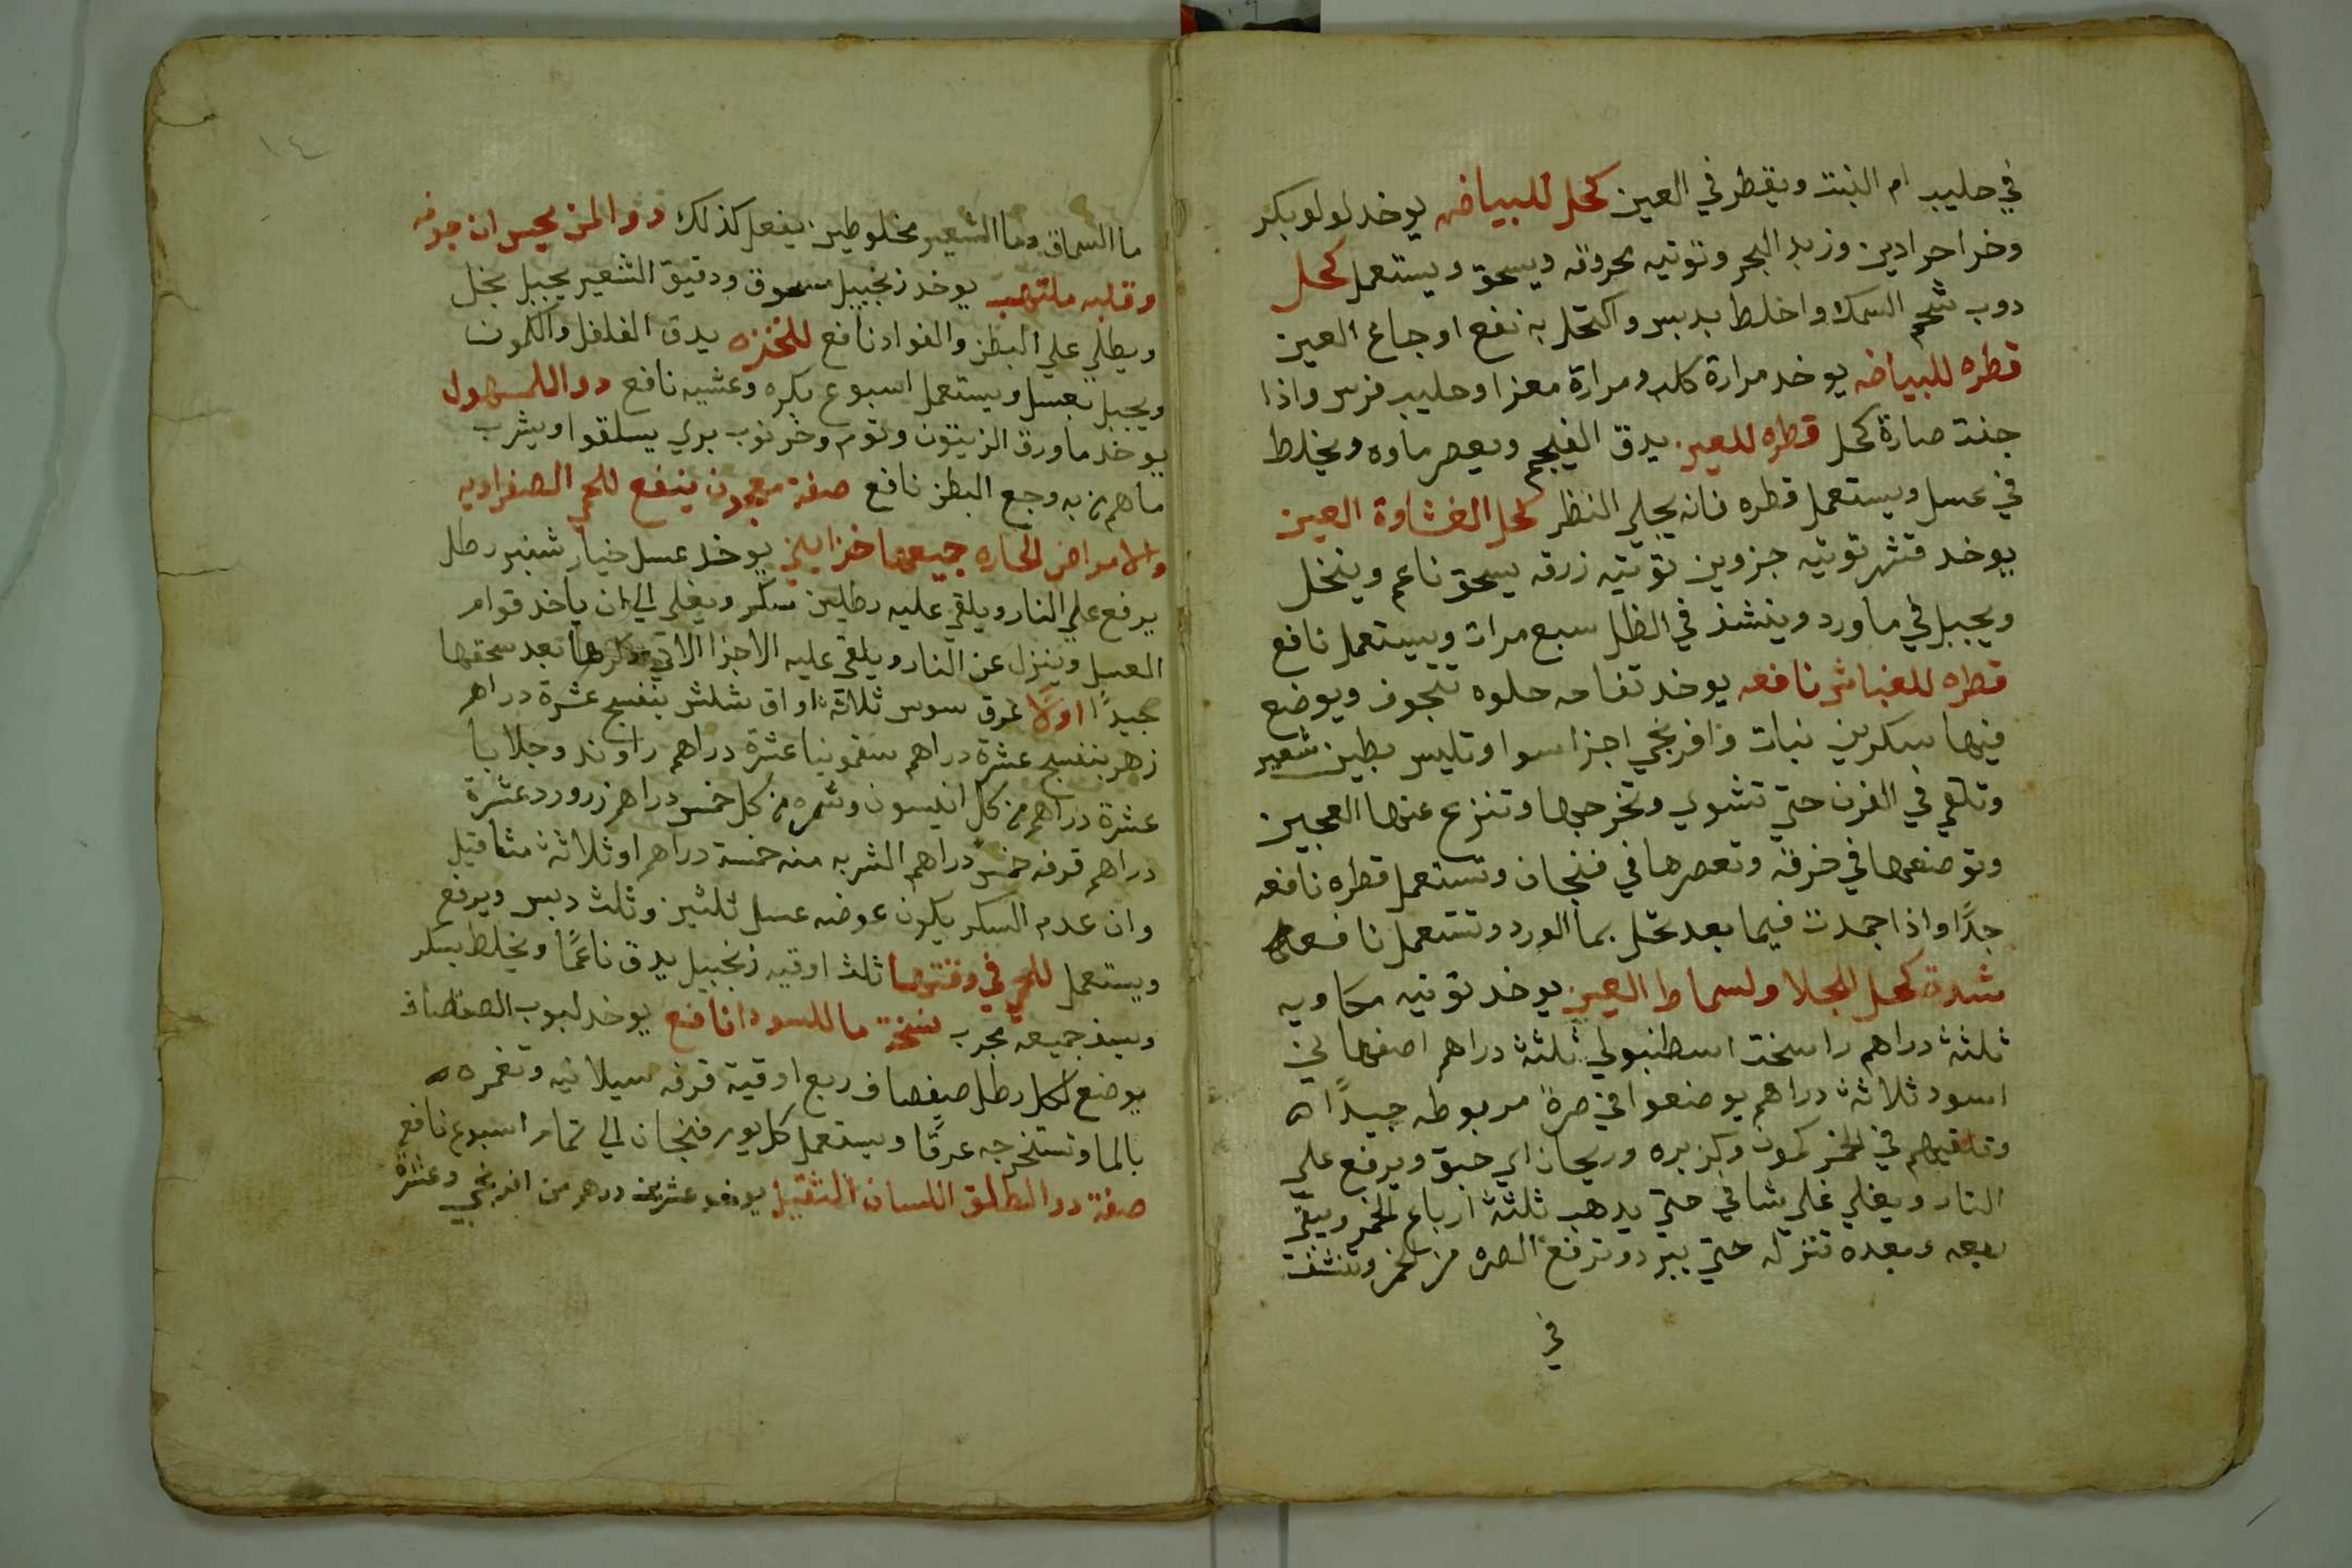 في حليب ام البنت ويقطر في العين كحل للبياض يوخد لولو بكر
وخرا حرادين وزبد البحر وتوتيه محروقه ويسحق ويستعمل كحل
دوب شحم السمك واخلط بدبس واكتحل به نفع اوجاع العين
قطره للبياض يوخد مرارة كلب ومرارة معزا وحليب فرس واذا
جفت صارة كحل قطره للعين يدق الفيجم ويعصر ماوه ويخلط
في عسل ويستعمل قطره فانه يجلي النظر كحل الغشاوة العين
يوخد قشر توتيه جزوين توتيه زرقه يسحق ناعم وينخل
ويجبل في ماورد وينشف في الظل سبع مرات ويستعمل نافع
قطره للغباش نافعه يوخد تفاحه حلوه تتجوف ويوضع
فيها سكر بن نبات وافرنجي اجزا سوا وتليس بطين شعير
وتلقي في الفرن حتي تشوي وتخرجها وتنزع عنها العجين
وتوضعها في خرقة وتعصرها في فنجان وتستعمل قطره نافعه
جدًا واذا جمدت فيما بعد تحل بما الورد وتستعمل نافعه
شدة كحل للجلا ولسماط العين يوخد توتيه مكاويه
ثلثة دراهم راسخت اسطنبولي ثلثة دراهم اصفهاني
اسود ثلاثة دراهم يوضعوا في صرة مربوطه جيدًا
وتلقيهم في الخمر كمون وكزبره وريحان اي حبق ويرفع علي
النار ويغلي غلي شافي حتي يدهب ثلثة ارباع الخمر ويبقي
ربعه وبعده تنزله حتي يبرد وترفع الصره من الخمر وتنشف
في
١٤
ما السماق وما الشعير مخلوطين يفعل كذلك دوا لمن يحس ان جوفه
وقلبه ملتهب يوخد زنجبيل مسحوق ودقيق الشعير يجبل بخل
ويطلي علي البطن والفواد نافع للنخزه يدق الفلفل والكمون
ويجبل بعسل ويستعمل اسبوع بكره وعشيه نافع دوا للمسهول
يوخد ما ورق الزيتون وتوم وخرنوب بري يسلقوا ويشرب
ماهم من به وجع البطن نافع صفة معجون ينفع للحمي الصفراويه
والامراض الحاره جميعها خزاينى يوخد عسل خيار شنبر رطل
يرفع علي النار ويلقي عليه رطلين سكر ويغلي الي ان ياخد قوام
العسل وينزل عن النار ويلقي عليه الاجزا الاتي ذكرها بعد سحقها
جيدًا اولا عرق سوس ثلاثة اواق شلش بنفسج عشرة دراهم
زهر بنفسج عشرة دراهم سقمونيا عشرة دراهم راوند وجلابا
عشرة دراهم من كل انيسون وشمره من كل خمس دراهم زرورد عشرة
دراهم قرفه خمس دراهم الشربه منه خمسة دراهم او ثلاثة مثاقيل
وان عدم السكر يكون عوضه عسل ثلثين وثلث دبس ويرفع
ويستعمل للحمي في وقتها ثلث اوقيه زنجبيل يدق ناعمًا ويخلط بسكر
ويسف جميعه مجرب نسخة ما للسودا نافع يوخد لبوب الصفصاف
يوضع لكل رطل صفصاف ربع اوقية قرفه سيلانيه وتغمره
بالما وتستخرجه عرقًا ويستعمل كل يوم فنجان الي تمام اسبوع نافع
صفة دوا لطلق اللسان الثقيل يوخد عشرين درهم من افرنجي وعشرة